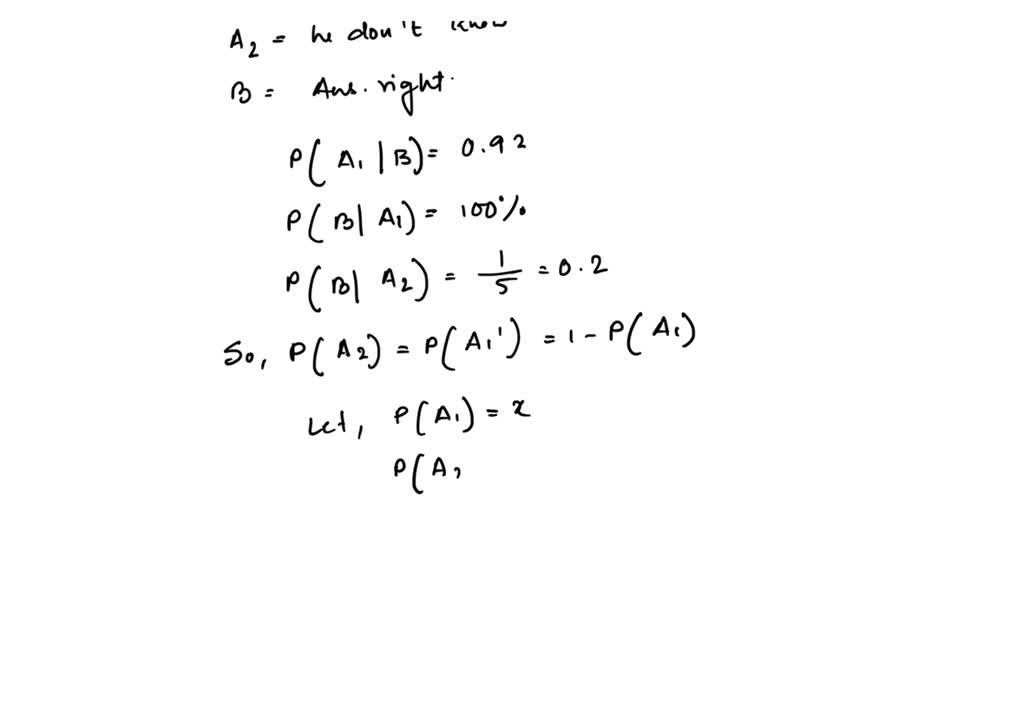 A2 = he don't know
B = Ans. right.
P( A1 | B) = 0.92
P( B | A1) = 100%
P( B | A2) = 1/5 = 0.2
So, P( A2) = P( A1') = 1 - P( A1)
Let, P( A1) = x
P( A2